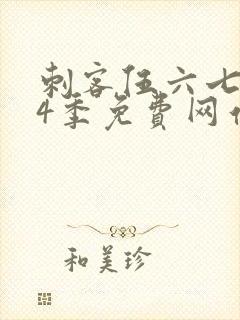 刺客伍六七
4季免费网
和美珍